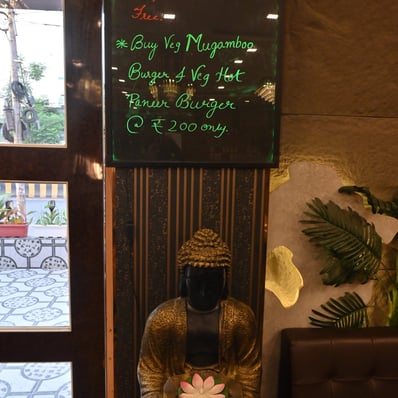 Free
* Buy Veg Mugamboo
Burger & Veg Hot
Paneer Burger
@ ₹ 200 only.